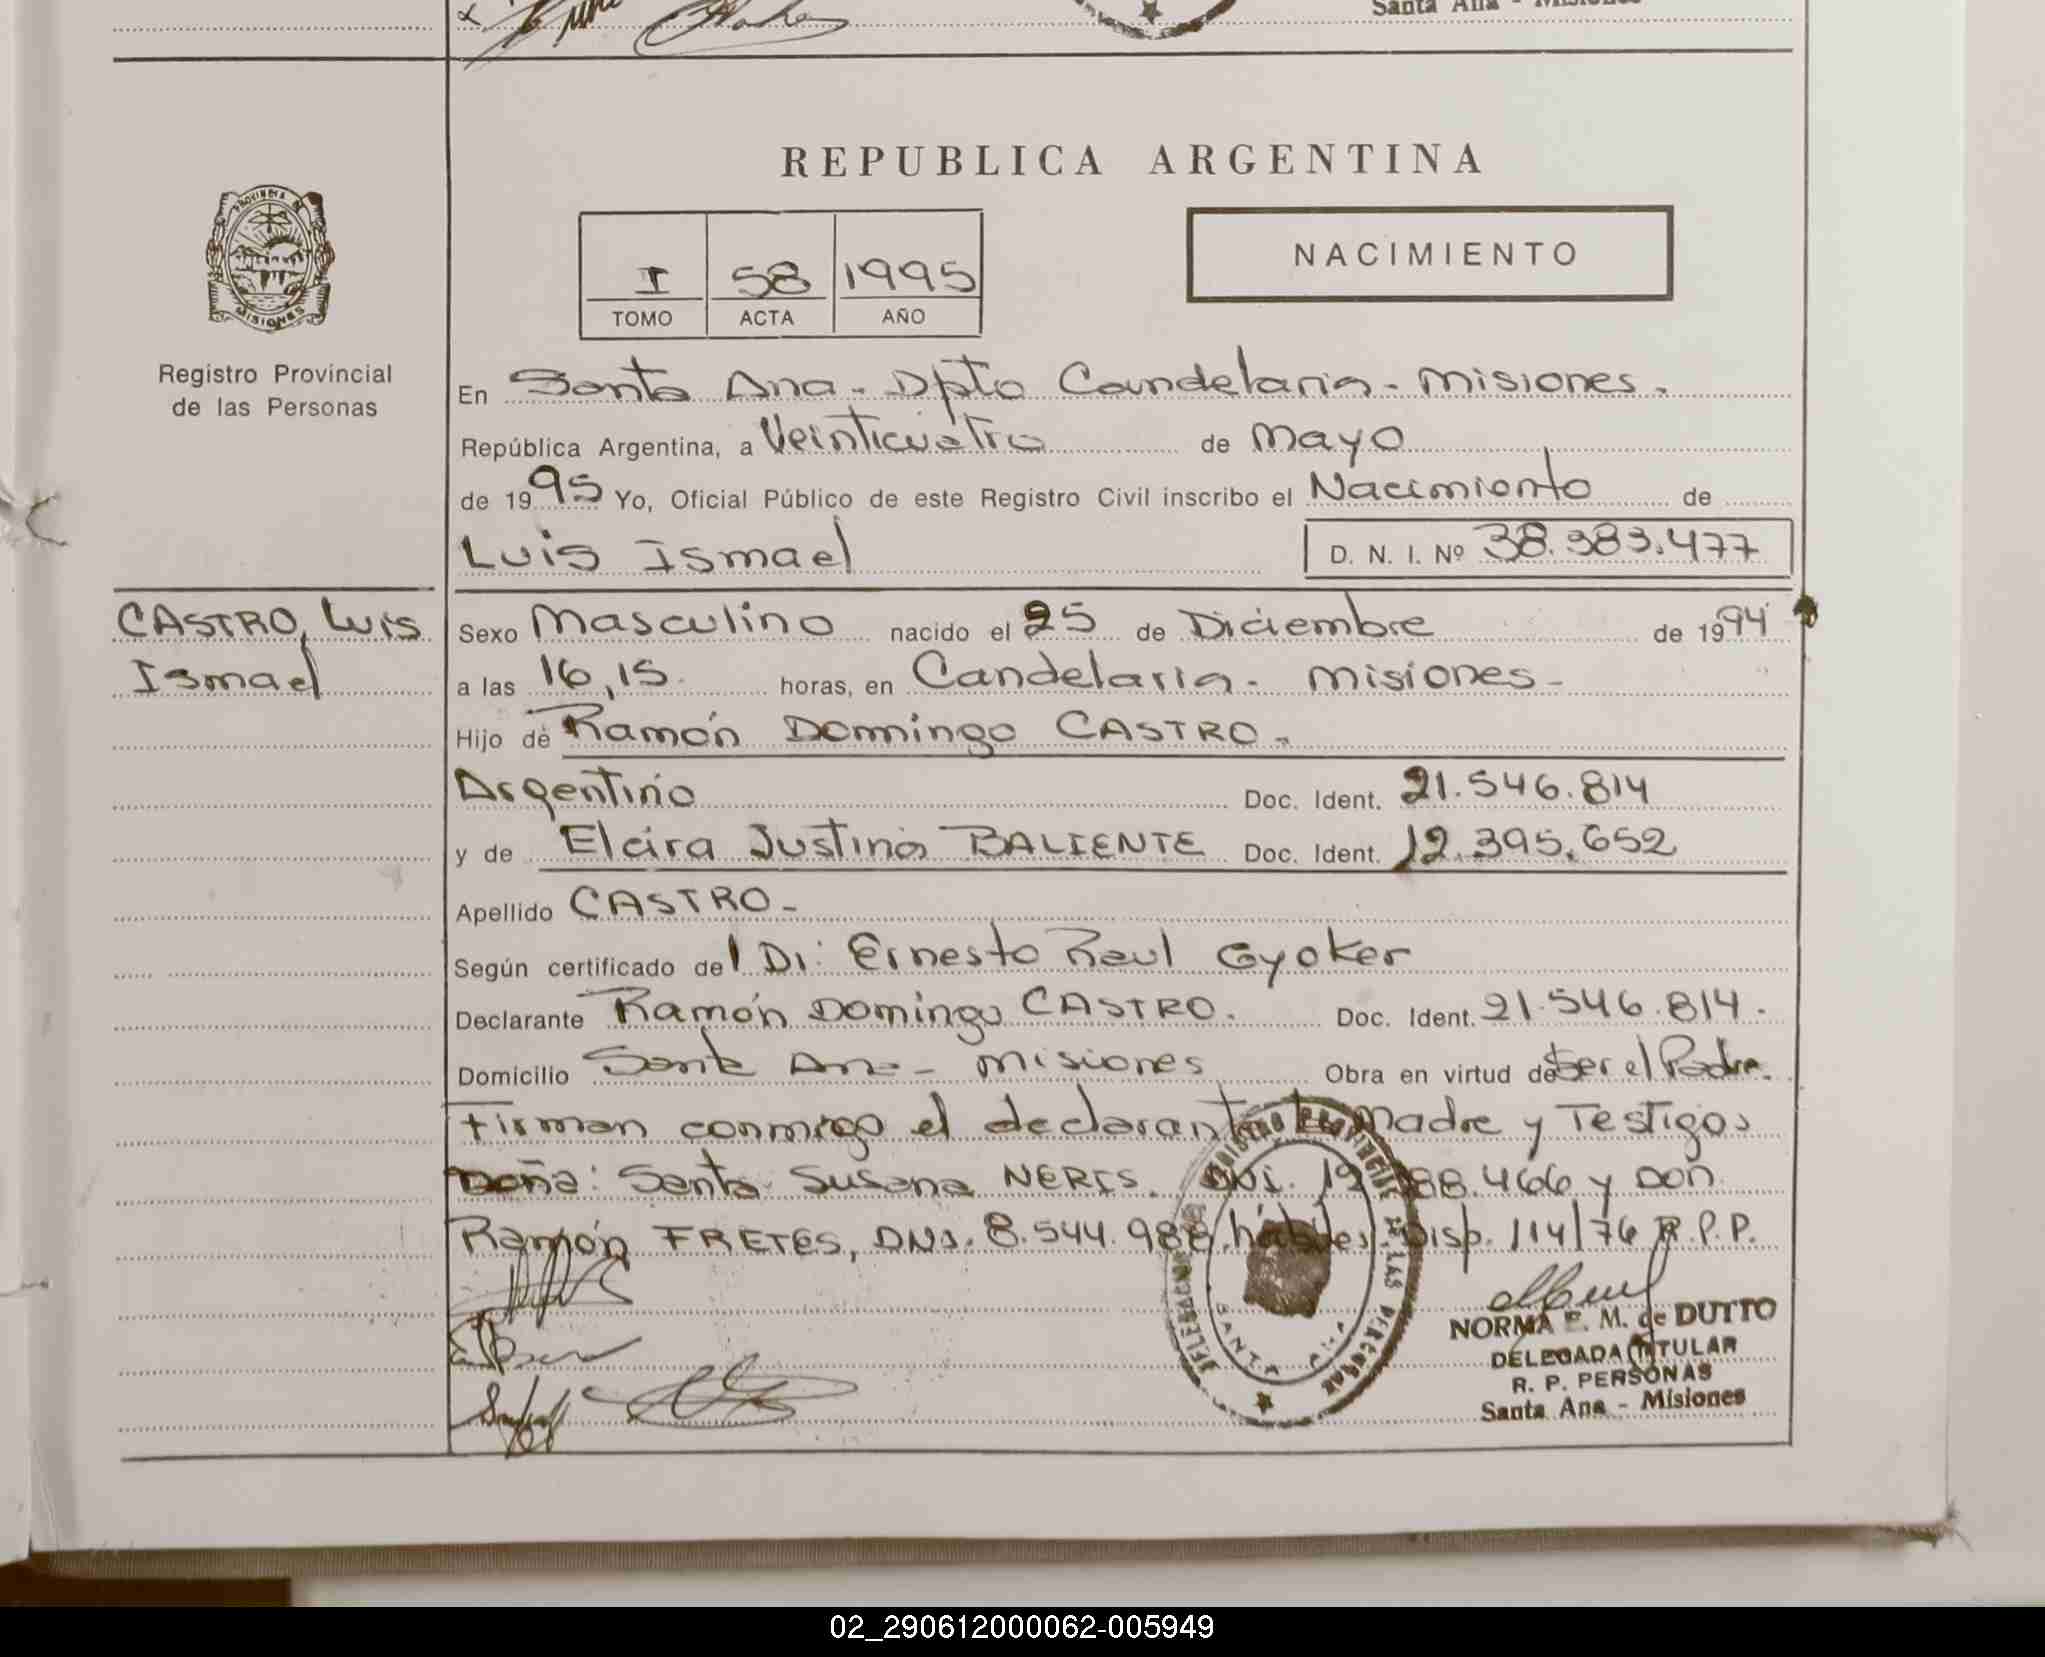 Santa Ana - Misiones
REPUBLICA ARGENTINA
I 58 1995
TOMO ACTA AÑO
NACIMIENTO
PROVINCIA
MISIONES
Registro Provincial
de las Personas
En Santa Ana - Dpto Candelaria - Misiones.
República Argentina, a Veinticuatro de Mayo
de 1995 Yo, Oficial Público de este Registro Civil inscribo el Nacimiento de
Luis Ismael D. N. I. Nº 38.383.477
CASTRO, Luis
Ismael
Sexo Masculino nacido el 25 de Diciembre de 1994
a las 16,15 horas, en Candelaria - Misiones -
Hijo de Ramón Domingo CASTRO.
Argentino Doc. Ident. 21.546.814
y de Elcira Justina BALIENTE Doc. Ident. 12.395.652
Apellido CASTRO -
Según certificado del Dr: Ernesto Raul Gyoker
Declarante Ramón Domingo CASTRO. Doc. Ident. 21.546.814.
Domicilio Santa Ana - Misiones Obra en virtud de Ser el Padre.
Firman conmigo el declarante la Madre y Testigos
Doña: Santa Susana NERIS. DNI. 88.466 y Don
Ramón FRETES, DNI. 8.544.988, hábiles Disp. 114/76 R.P.P.
NORMA E. M. de DUTTO
DELEGADA TITULAR
R. P. PERSONAS
Santa Ana - Misiones
SANTA ANA
02_290612000062-005949